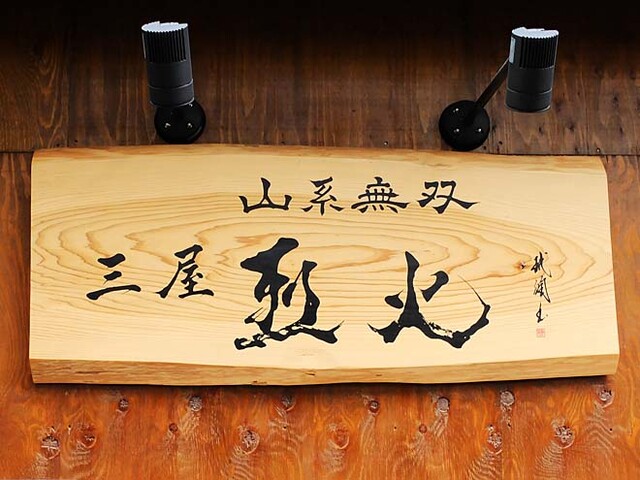 山系無双
三屋 烈火